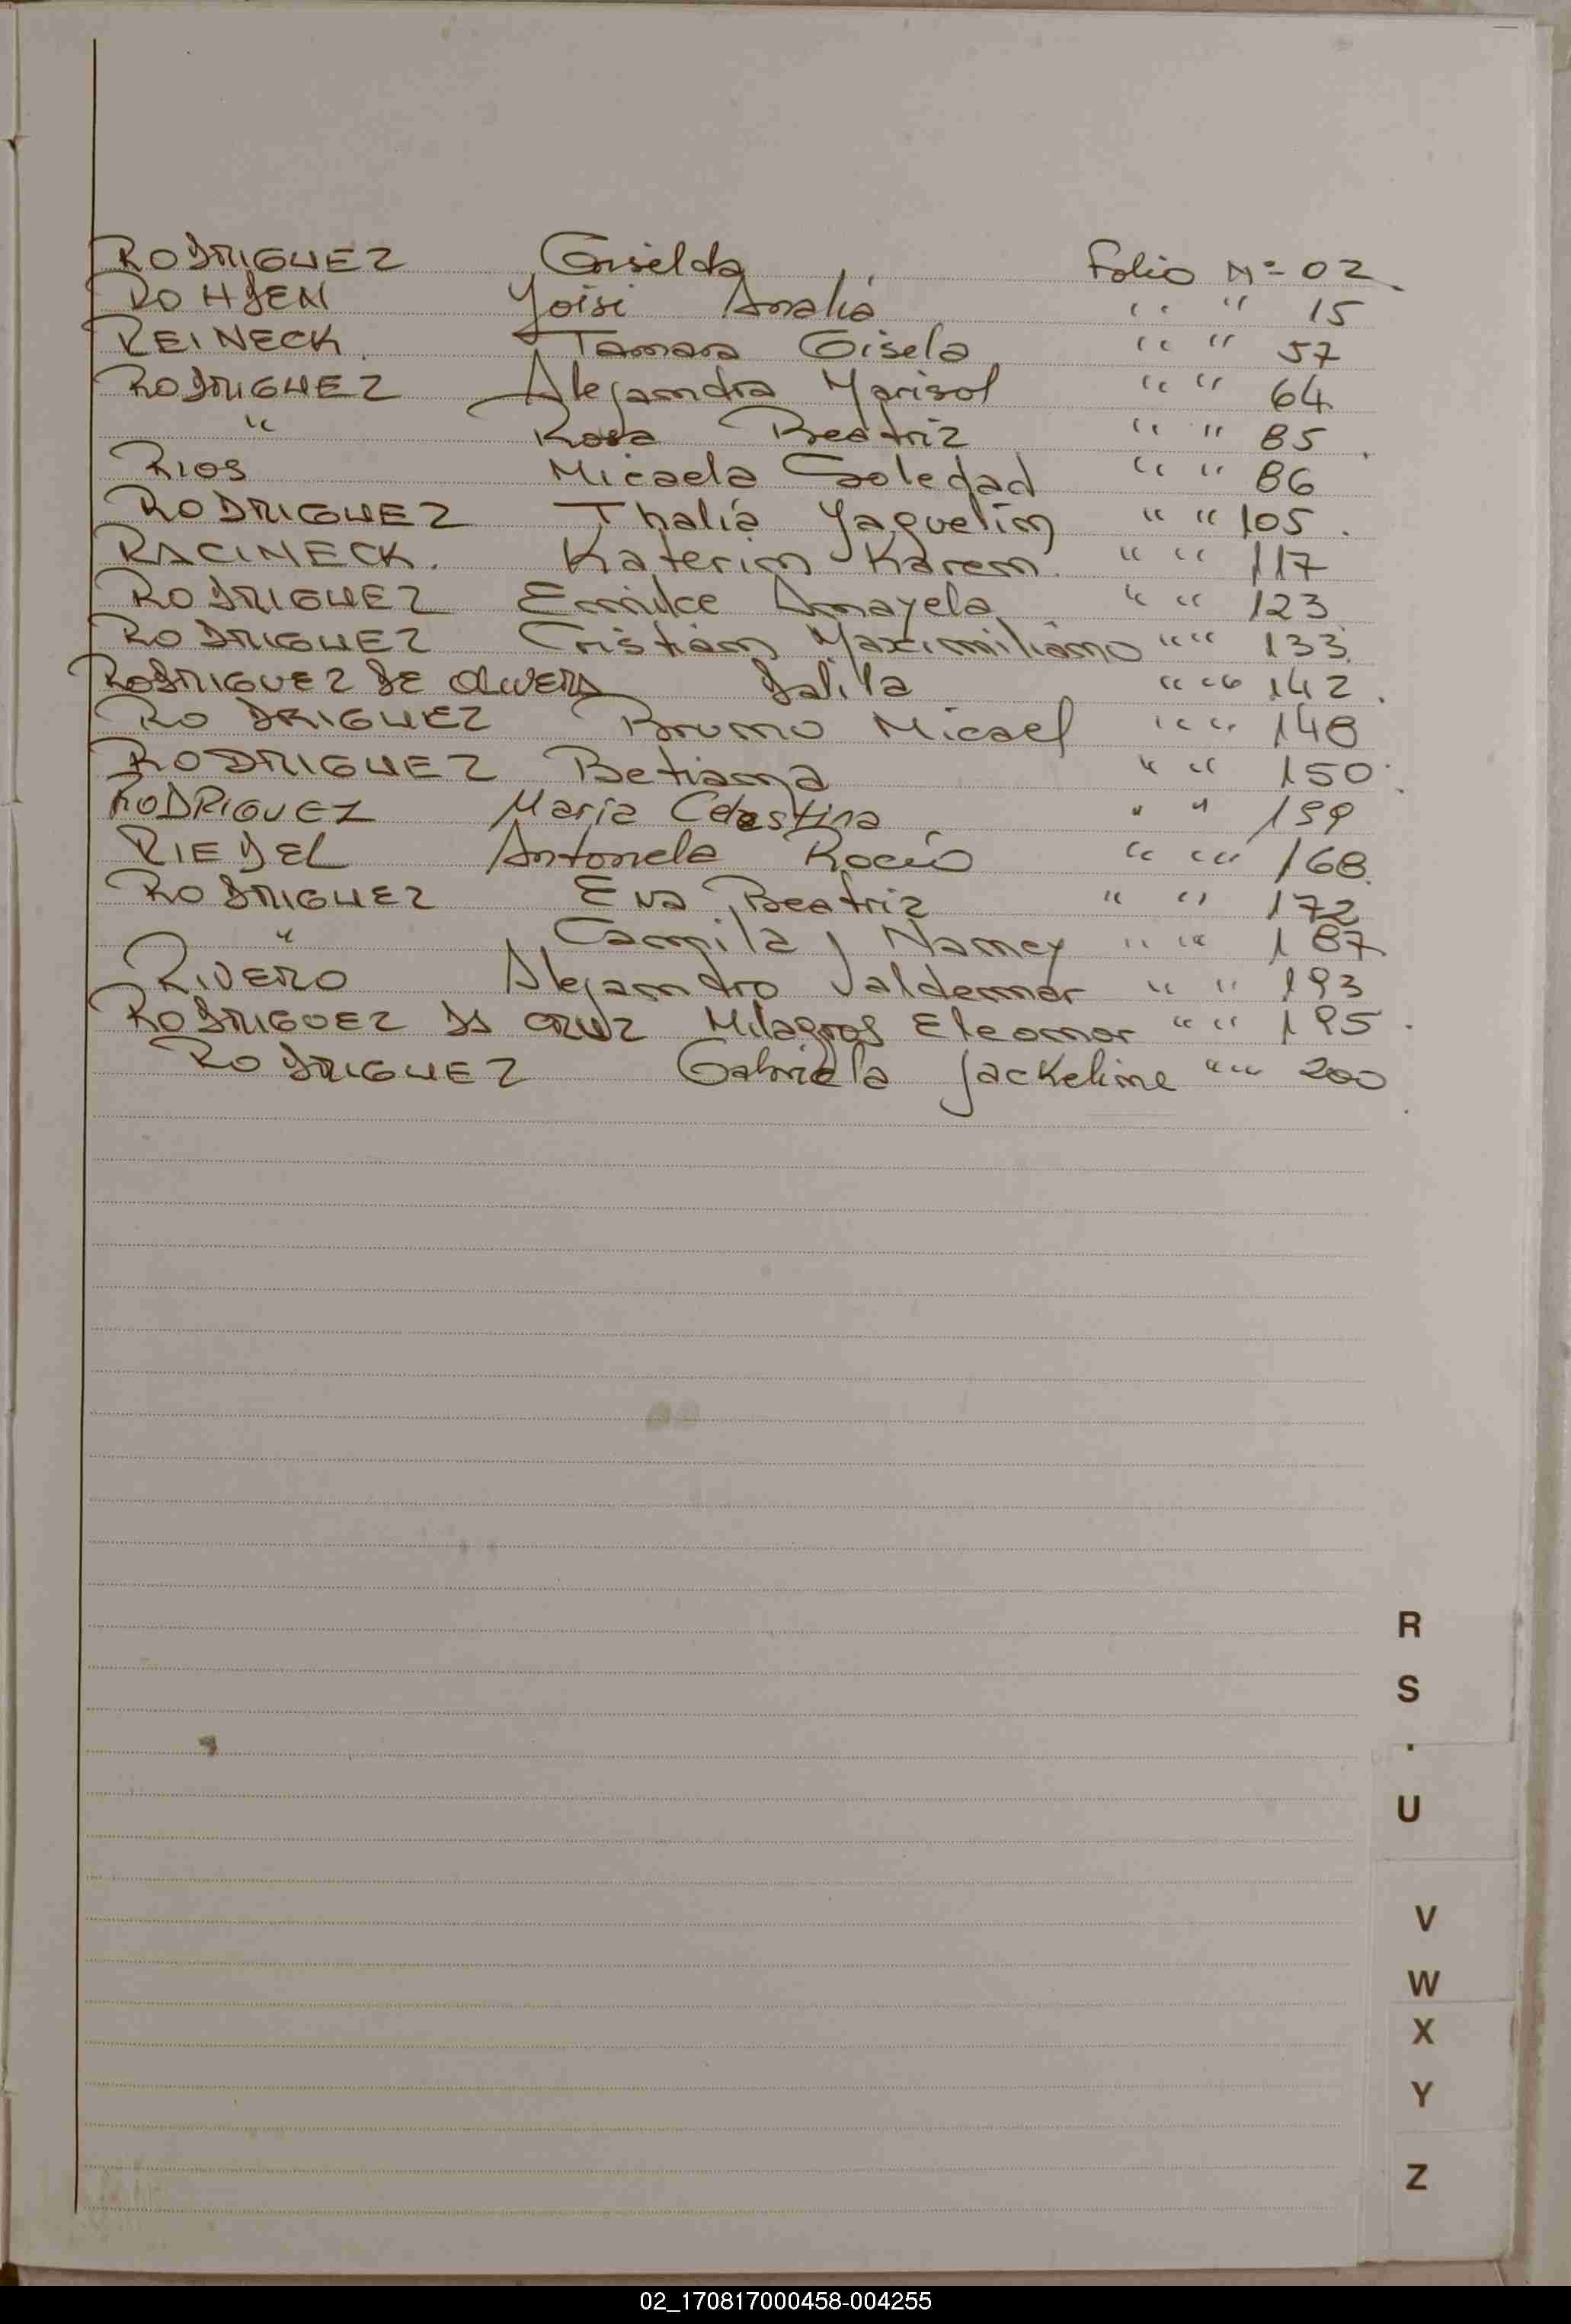 RODRIGUEZ Griselda Folio Nº 02
ROHDEN Yoisi Analia " " 15
REINECK. Tamara Gisela " " 57
RODRIGUEZ Alejandra Marisol " " 64
" Rosa Beatriz " " 85
RIOS Micaela Soledad " " 86
RODRIGUEZ Thalía Yaquelin " " 105.
RACINECK. Katerin Karem. " " 117
RODRIGUEZ Emilce Amayela " " 123
RODRIGUEZ Cristian Maximiliano " " 133
RODRIGUEZ DE OLIVERA Dalila " " 142.
RODRIGUEZ Bruno Micael " " 148
RODRIGUEZ Betiana " " 150
RODRIGUEZ Maria Celestina " " 159
RIEDEL Antonela Rocío " " 168
RODRIGUEZ Eva Beatriz " " 172
" Camila Nancy " " 187
RIVERO Alejandro Valdemar " " 193
RODRIGUEZ DA CRUZ Milagros Eleonor " " 195.
RODRIGUEZ Gabriela Jackeline " " 200
R
S
U
V
W
X
Y
Z
02_170817000458-004255